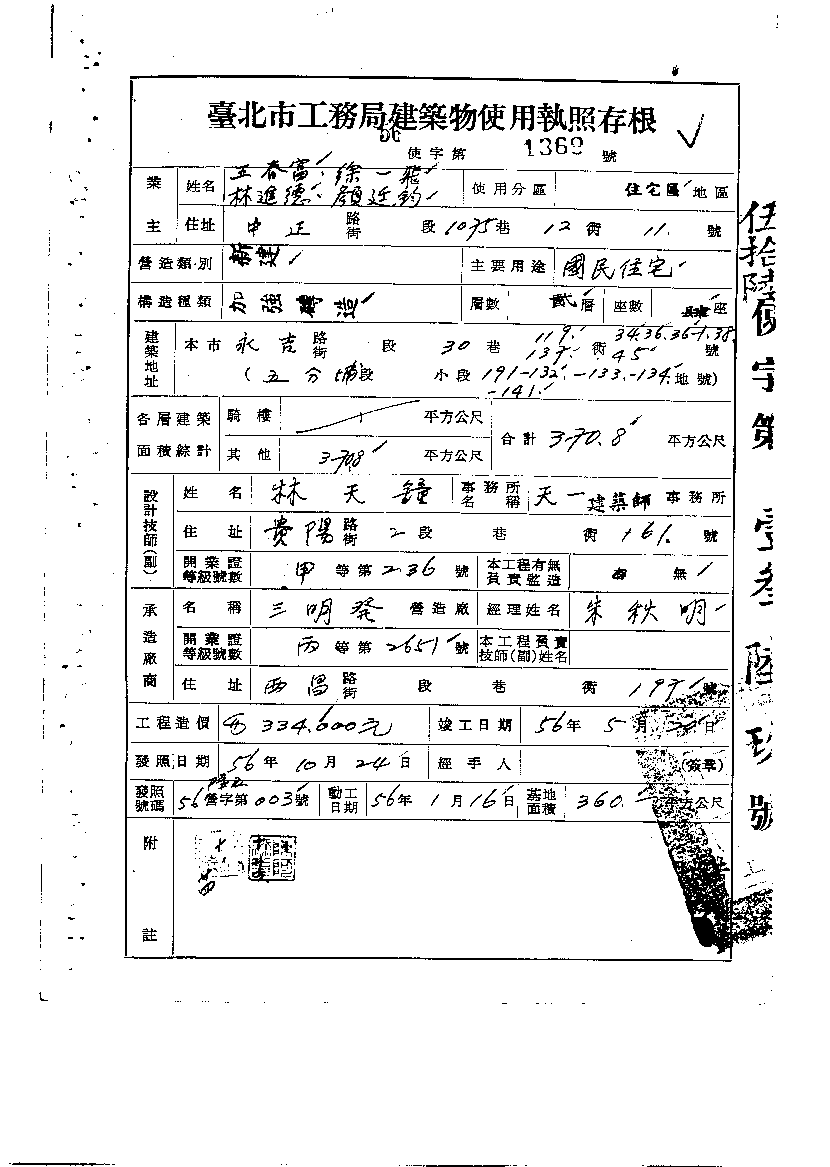 臺北市工務局建築物使用執照存根
56 使字第 1369 號
業主 姓名 王春富、徐一飛 林進德、顏廷鈞 使用分區 住宅區 地區
住址 中正 路街 段 1075 巷 12 衖 11 號
營造類別 新建 主要用途 國民住宅
構造種類 加強磚造 層數 貳層 座數 座
建築地址 本市 永吉 路街 段 30 巷 119. 137. 衖 34.36.36-1.38. 45 號
(五分埔段 小段 191-132.-133.-134. -141. 地號)
各層建築面積綜計 騎樓 平方公尺 合計 370.8 平方公尺
其他 370.8 平方公尺
設計技師(副) 姓名 林天鐘 事務所名稱 天一建築師 事務所
住址 貴陽 路街 2 段 巷 衖 161. 號
開業證等級號數 甲 等第 236 號 本工程有無員實監造 有 無
承造廠商 名稱 三明發 營造廠 經理姓名 朱秋明
開業證等級號數 丙 等第 2651 號 本工程員實技師(副)姓名
住址 西昌 路街 段 巷 衖 197 號
工程造價 334,600元 竣工日期 56年 5月 日
發照日期 56年 10月 24日 經手人 (簽章)
發照號碼 56 營字第 003 號 動工日期 56年 1月 16日 基地面積 360. 平方公尺
附註
伍拾陸使字第 壹叁陸玖號